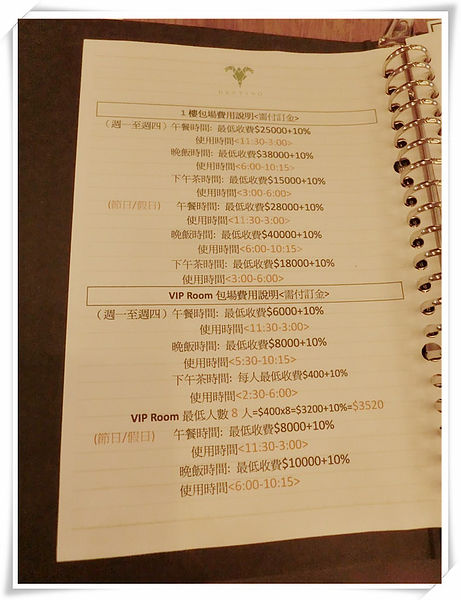 DESTINO
1 樓包場費用說明<需付訂金>
(週一至週四) 午餐時間: 最低收費$25000+10%
使用時間<11:30-3:00>
晚飯時間: 最低收費$38000+10%
使用時間<6:00-10:15>
下午茶時間: 最低收費$15000+10%
使用時間<3:00-6:00>
(節日/假日) 午餐時間: 最低收費$28000+10%
使用時間<11:30-3:00>
晚飯時間: 最低收費$40000+10%
使用時間<6:00-10:15>
下午茶時間: 最低收費$18000+10%
使用時間<3:00-6:00>
VIP Room 包場費用說明<需付訂金>
(週一至週四) 午餐時間: 最低收費$6000+10%
使用時間<11:30-3:00>
晚飯時間: 最低收費$8000+10%
使用時間<5:30-10:15>
下午茶時間: 每人最低收費$400+10%
使用時間<2:30-6:00>
VIP Room 最低人數 8 人=$400x8=$3200+10%=$3520
(節日/假日) 午餐時間: 最低收費$8000+10%
使用時間<11:30-3:00>
晚飯時間: 最低收費$10000+10%
使用時間<6:00-10:15>